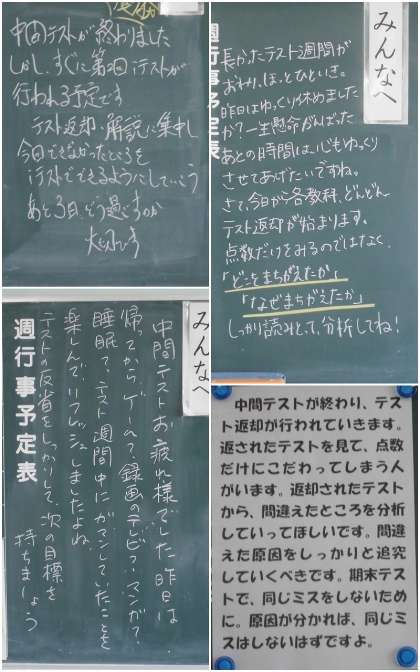 中間テストが終わりました
しかし、すぐに第2回iテストが
行われる予定です
テスト返却・解説に集中し
今回できなかったところを
iテストでできるようにしていこう
あと3日、どう過ごすのか
大切ですよ
みんなへ
週行事予定表
長かったテスト週間が
おわり、ほっとひといき。
昨日はゆっくり休めました
か?一生懸命がんばった
あとの時間は、心もゆっくり
させてあげたいですね。
さて、今日から各教科、どんどん
テスト返却が始まります。
点数だけをみるのではなく、
「どこをまちがえたか」
「なぜまちがえたか」
しっかり読みとって、分析してね!
みんなへ
中間テストお疲れ様でした。昨日は、
帰ってからゲーム?録画のテレビ?マンガ?
睡眠?、テスト週間中にガマンしていたことを
楽しんでリフレッシュしましたよね
テストの反省をしっかりして、次の目標を
持ちましょう
週行事予定表
中間テストが終わり、テス
ト返却が行われていきます。
返されたテストを見て、点数
だけにこだわってしまう人
がいます。返却されたテスト
から、間違えたところを分析
していってほしいです。間違
えた原因をしっかりと追究
していくべきです。期末テス
トで、同じミスをしないため
に。原因が分かれば、同じミ
スはしないはずですよ。